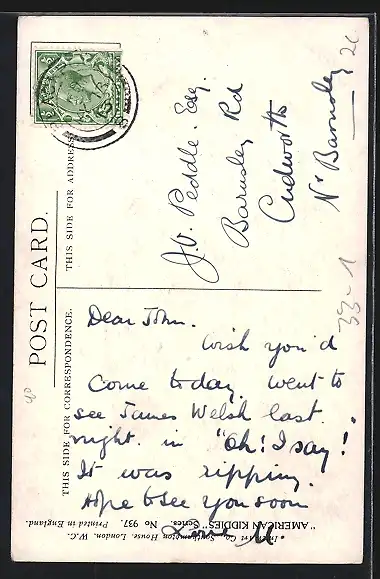 POST CARD.
THIS SIDE FOR CORRESPONDENCE.
THIS SIDE FOR ADDRESS
Dear John.
Wish you'd
come today. went to
see James Welsh last
night. in "Oh! I say!"
It was ripping.
Hope to see you soon
Love
J.V. Peddle. Esq.
Barnsley Rd
Cudworth
Nr Barnsley
2c
33-1
Inter-Art Co., Southampton House, London, W.C.
"AMERICAN KIDDIES" Series. No. 937. Printed in England.